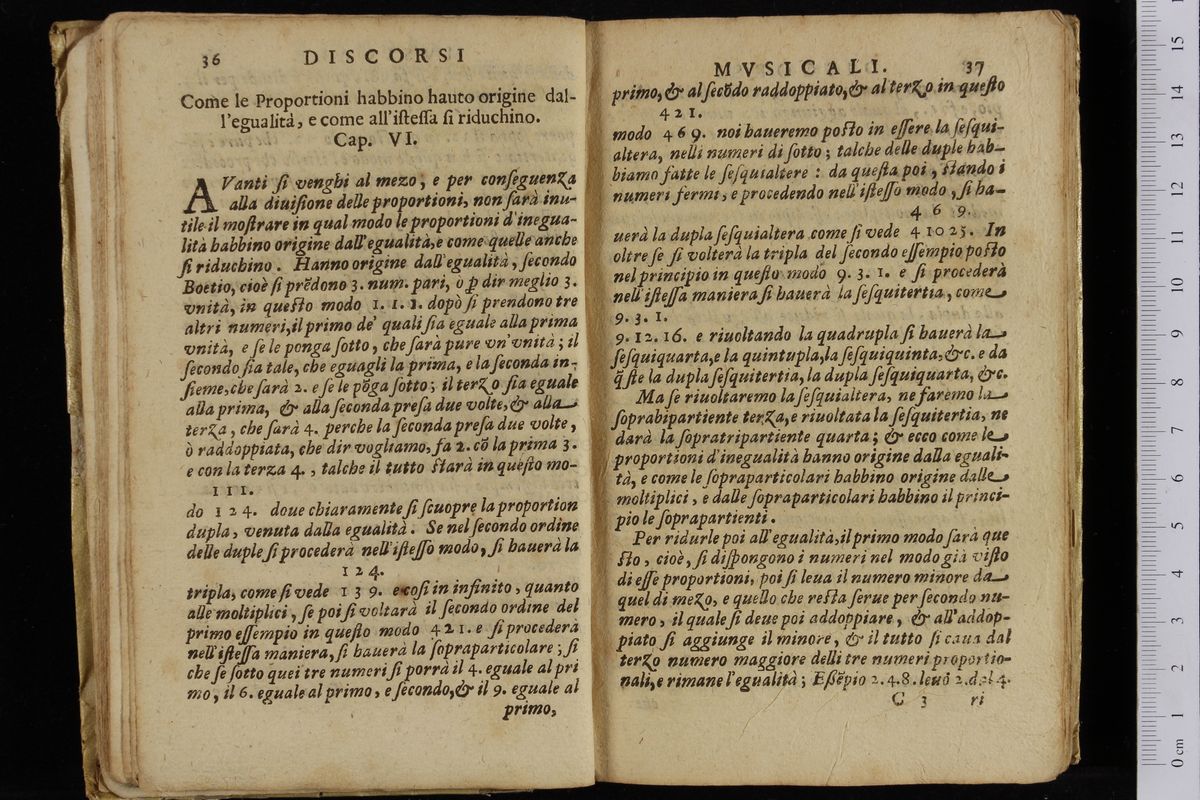 36 DISCORSI
Come le Proportioni habbino hauto origine dal-
l'egualità, e come all'iſteſſa ſi riduchino.
Cap. VI.
AVanti ſi venghi al mezo, e per conſeguenza
alla diuiſione delle proportioni, non ſarà inu-
tile il moſtrare in qual modo le proportioni d'inegua-
lità habbino origine dall'egualità, e come quelle anche
ſi riduchino. Hanno origine dall'egualità, ſecondo
Boetio, cioè ſi prẽdono 3. num. pari, o ꝑ dir meglio 3.
vnità, in queſto modo 1. 1. 1. dopò ſi prendono tre
altri numeri, il primo de' quali ſia eguale alla prima
vnità, e ſe le ponga ſotto, che ſarà pure vn'vnità; il
ſecondo ſia tale, che eguagli la prima, e la ſeconda in-
ſieme, che ſarà 2. e ſe le põga ſotto; il terzo ſia eguale
alla prima, & alla ſeconda preſa due volte, & alla
terza, che ſarà 4. perche la ſeconda preſa due volte,
ò raddoppiata, che dir vogliamo, fa 2. cõ la prima 3.
e con la terza 4., talche il tutto ſtarà in queſto mo-
1 1 1.
do 1 2 4. doue chiaramente ſi ſcuopre la proportion
dupla, venuta dalla egualità. Se nel ſecondo ordine
delle duple ſi procederà nell'iſteſſo modo, ſi hauerà la
1 2 4.
tripla, come ſi vede 1 3 9. e coſi in infinito, quanto
alle moltiplici, ſe poi ſi voltarà il ſecondo ordine del
primo eſſempio in queſto modo 4 2 1. e ſi procederà
nell'iſteſſa maniera, ſi hauerà la ſopraparticolare; ſi
che ſe ſotto quei tre numeri ſi porrà il 4. eguale al pri
mo, il 6. eguale al primo, e ſecondo, & il 9. eguale al
primo,
MVSICALI. 37
primo, & al ſecõdo raddoppiato, & al terzo in queſto
4 2 1.
modo 4 6 9. noi haueremo poſto in eſſere la ſeſqui-
altera, nelli numeri di ſotto; talche delle duple hab-
biamo fatte le ſeſquialtere: da queſta poi, ſtando i
numeri fermi, e procedendo nell'iſteſſo modo, ſi ha-
4 6 9.
uerà la dupla ſeſquialtera come ſi vede 4 10 25. In
oltre ſe ſi volterà la tripla del ſecondo eſſempio poſto
nel principio in queſto modo 9. 3. 1. e ſi procederà
nell'iſteſſa maniera ſi hauerà la ſeſquitertia, come
9. 3. 1.
9. 12. 16. e riuoltando la quadrupla ſi hauerà la
ſeſquiquarta, e la quintupla, la ſeſquiquinta, &c. e da
q̃ſte la dupla ſeſquitertia, la dupla ſeſquiquarta, &c.
Ma ſe riuoltaremo la ſeſquialtera, ne faremo la
ſoprabipartiente terza, e riuoltata la ſeſquitertia, ne
darà la ſopratripartiente quarta; & ecco come le
proportioni d'inegualità hanno origine dalla eguali-
tà, e come le ſopraparticolari habbino origine dalle
moltiplici, e dalle ſopraparticolari habbino il princi-
pio le ſoprapartienti.
Per ridurle poi all'egualità, il primo modo ſarà que
ſto, cioè, ſi diſpongono i numeri nel modo già viſto
di eſſe proportioni, poi ſi leua il numero minore da
quel di mezo, e quello che reſta ſerue per ſecondo nu-
mero, il quale ſi deue poi addoppiare, & all'addop-
piato ſi aggiunge il minore, & il tutto ſi caua dal
terzo numero maggiore delli tre numeri proportio-
nali, e rimane l'egualità; Eſſẽpio 2. 4. 8. leuõ 2. dal 4.
C 3 ri
0 cm 1 2 3 4 5 6 7 8 9 10 11 12 13 14 15